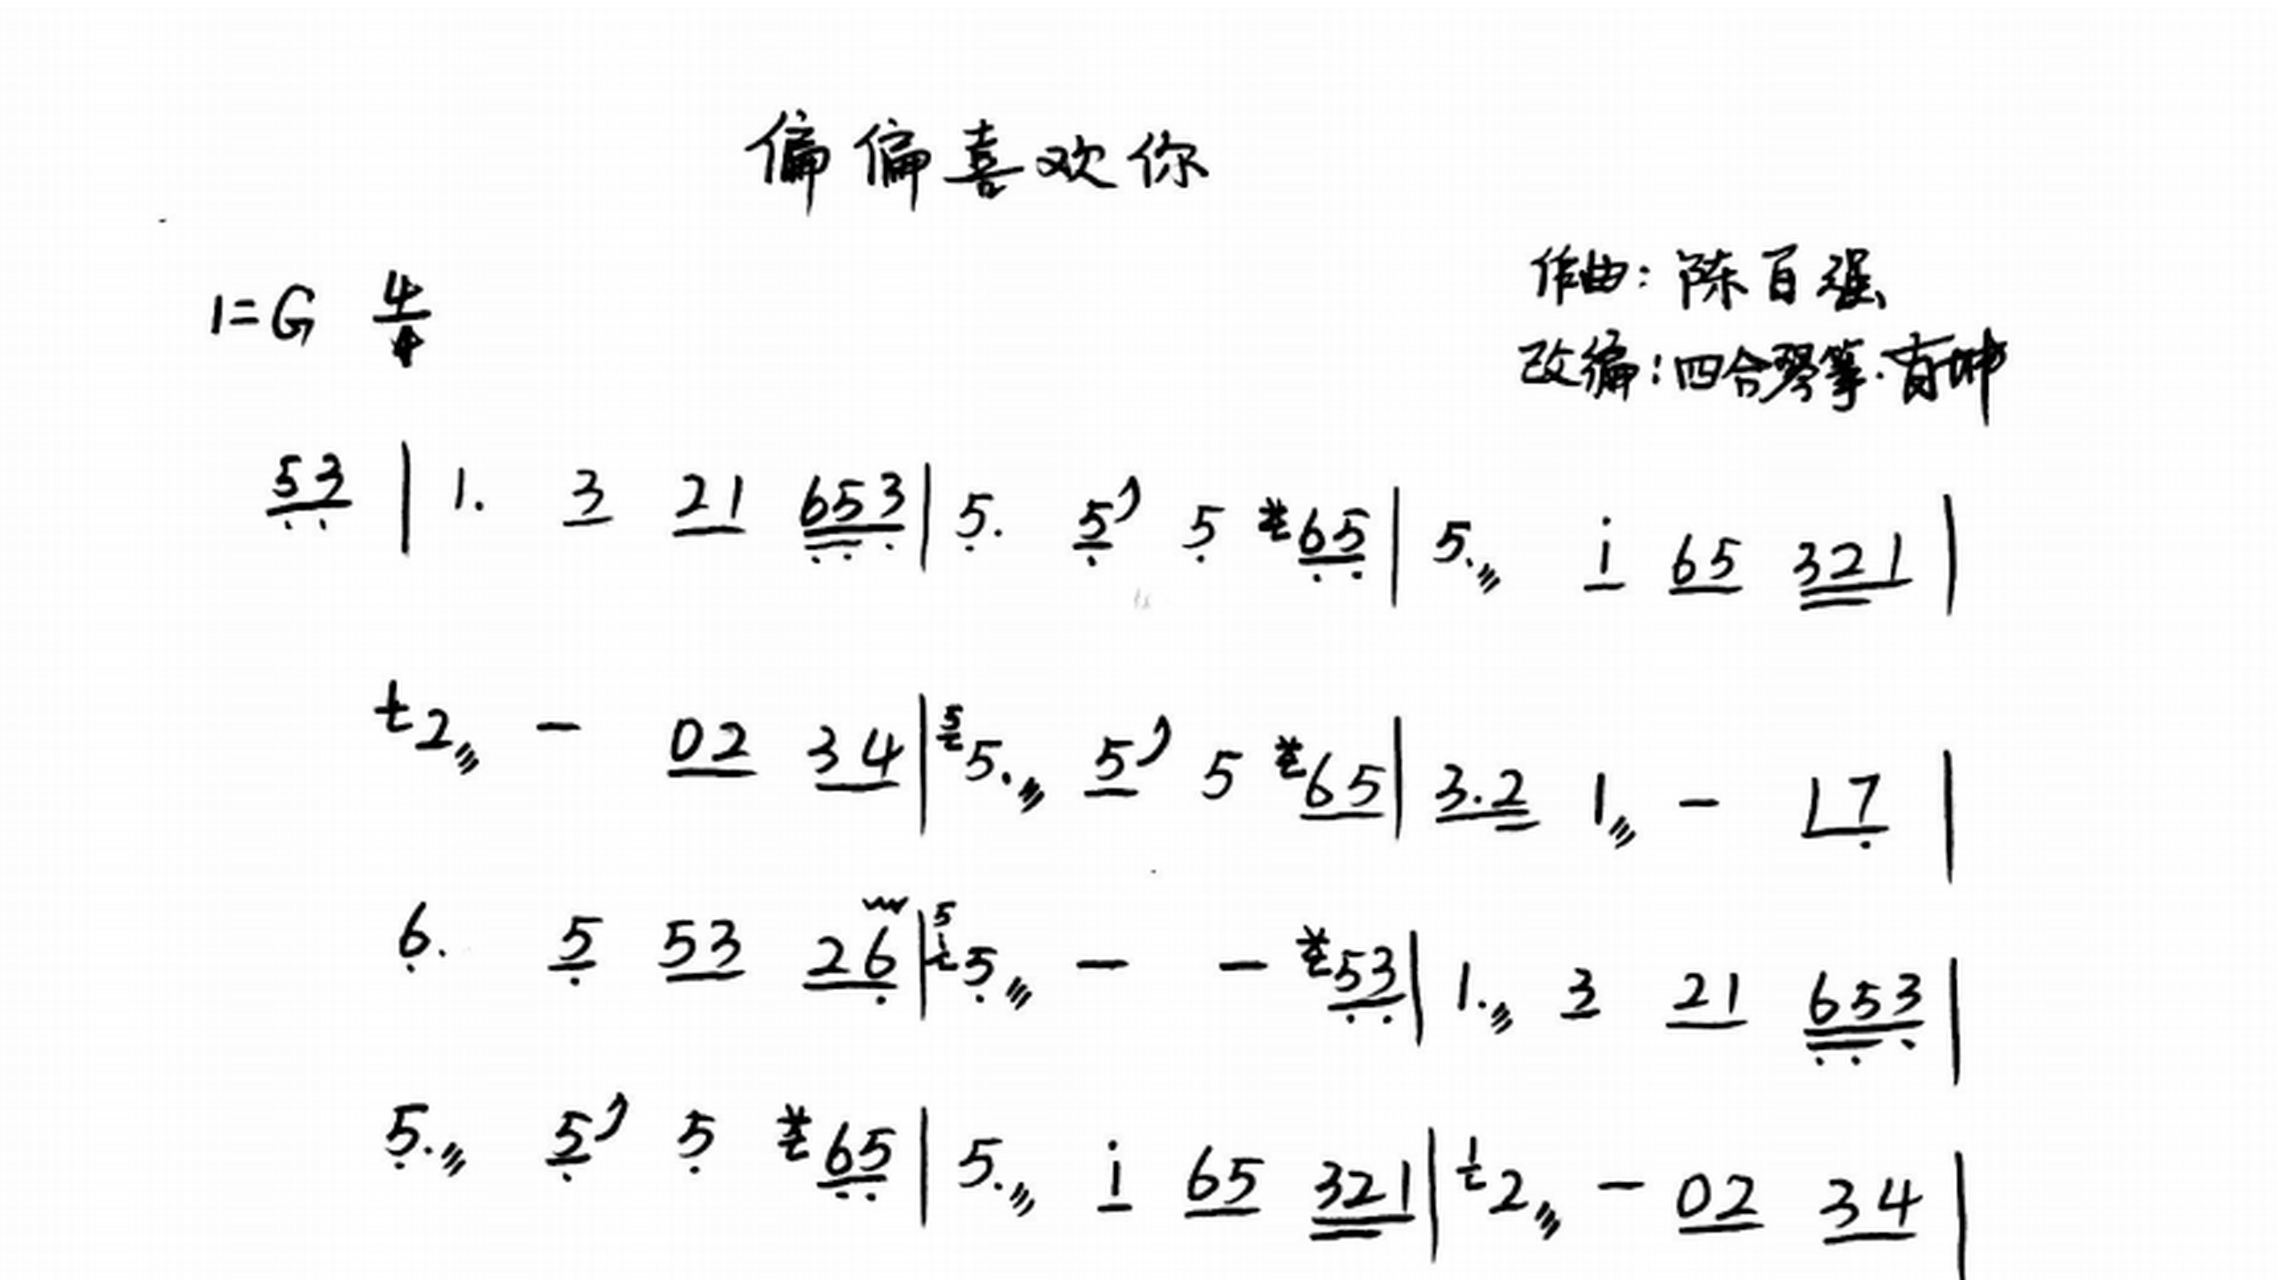 偏偏喜欢你
作曲：陈百强
1=G 4/4
改编：四合琴筝·育坤
53 | 1. 3 21 653 | 5. 5 5 65 | 5. i 65 321 |
12 - 02 34 | 5 5. 5 5 65 | 3.2 1 - 17 |
6. 5 53 26 | 51 5 - - 53 | 1. 3 21 653 |
5. 5 5 65 | 5. i 65 321 | 12 - 02 34 |